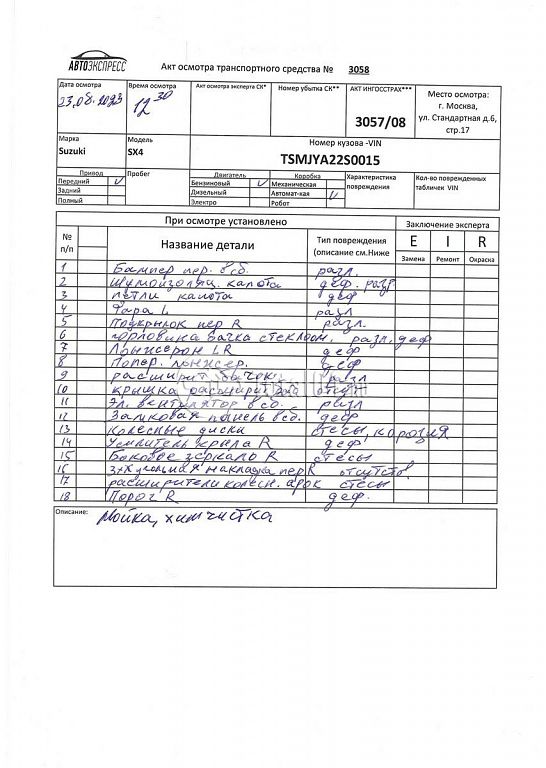 АВТОЭКСПРЕСС
Акт осмотра транспортного средства № 3058
Дата осмотра Время осмотра Акт осмотра эксперта СК* Номер убытка СК** АКТ ИНГОССТРАХ*** Место осмотра:
23.08.2023 12 30 3057/08 г. Москва,
ул. Стандартная д.6,
стр.17
Марка Модель Номер кузова -VIN
Suzuki SX4 TSMJYA22S0015
Привод Пробег Двигатель Коробка Характеристика повреждения Кол-во поврежденных табличек VIN
Передний V Бензиновый V Механическая
Задний Дизельный Автомат-кая V
Полный Электро Робот
При осмотре установлено Заключение эксперта
№ п/п Название детали Тип повреждения (описание см.Ниже E I R
Замена Ремонт Окраска
1 Бампер пер. в сб. разл.
2 Шумоизоляц. капота деф. разр
3 петли капота деф
4 Фара L разл
5 Подкрылок пер R разл.
6 горловина бачка стеклоом. разл, деф
7 Лонжерон LR деф
8 Попер. лонжер. деф
9 расширит бачок разл
10 крышка расширит бач отсут
11 Эл. вентилятор в сб. разл
12 Замковая панель в сб. деф
13 Колесные диски стесы, корозия
14 Усилитель крыла R деф.
15 Боковое зеркало R стесы
16 накладка пер R отсутств.
17 расширители колесн. арок стесы
18 Порог R деф.
Описание: Мойка, химчистка